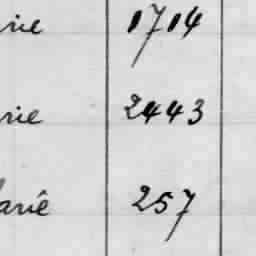 rie 1714
rie 2443
arié 257